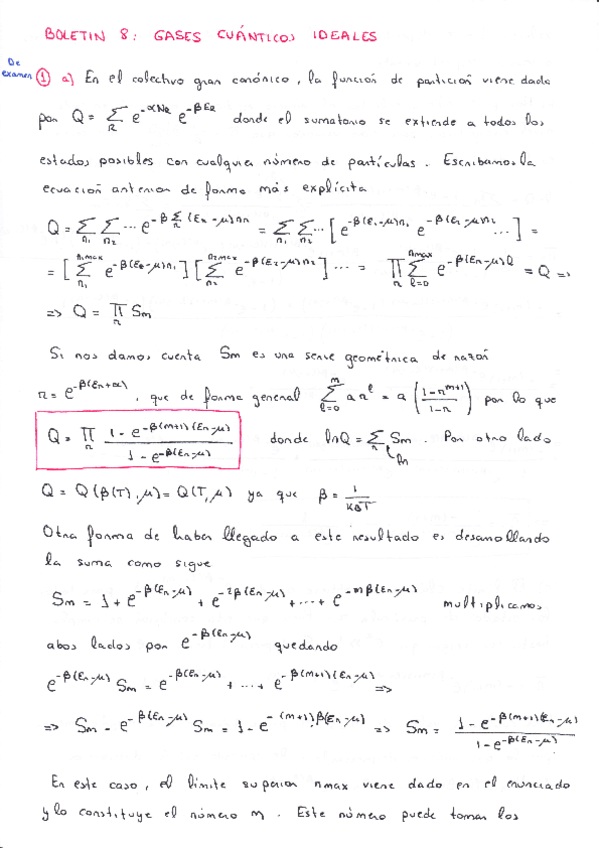 BOLETIN 8: GASES CUÁNTICOS IDEALES
De examen
① a) En el colectivo gran canónico, la función de partición viene dada
por Q = Σ_R e^{-αN_R} e^{-βE_R} donde el sumatorio se extiende a todos los
estados posibles con cualquier número de partículas. Escribamos la
ecuación anterior de forma más explícita
Q = Σ_{n₁} Σ_{n₂} ... e^{-β Σ_r (ε_r-μ)n_r} = Σ_{n₁} Σ_{n₂} ... [e^{-β(ε₁-μ)n₁} e^{-β(ε₂-μ)n₂} ...] =
= [Σ_{n₁}^{n₁max} e^{-β(ε_r-μ)n₁}] [Σ_{n₂}^{n₂max} e^{-β(ε₂-μ)n₂}] ... = Π_r Σ_{l=0}^{nmax} e^{-β(ε_r-μ)l} = Q =>
=> Q = Π_r Sm
Si nos damos cuenta Sm es una serie geométrica de razón
r = e^{-β(ε_r+α)}, que de forma general Σ_{l=0}^{m} a r^l = a ((1-r^{m+1})/(1-r)) por lo que
Q = Π_r (1 - e^{-β(m+1)(ε_r-μ)})/(1 - e^{-β(ε_r-μ)}) donde lnQ = Σ_r Sm . Por otro lado
ln
Q = Q(β(T),μ) = Q(T,μ) ya que β = 1/(K_BT)
Otra forma de haber llegado a este resultado es desarrollando
la suma como sigue
Sm = 1 + e^{-β(ε_r-μ)} + e^{-2β(ε_r-μ)} + ... + e^{-mβ(ε_r-μ)} multiplicamos
abos lados por e^{-β(ε_r-μ)} quedando
e^{-β(ε_r-μ)} Sm = e^{-β(ε_r-μ)} + ... + e^{-β(m+1)(ε_r-μ)} =>
=> Sm - e^{-β(ε_r-μ)} Sm = 1 - e^{-(m+1)β(ε_r-μ)} => Sm = (1 - e^{-β(m+1)(ε_r-μ)})/(1 - e^{-β(ε_r-μ)})
En este caso, el límite superior nmax viene dado en el enunciado
y lo constituye el número m. Este número puede tomar los